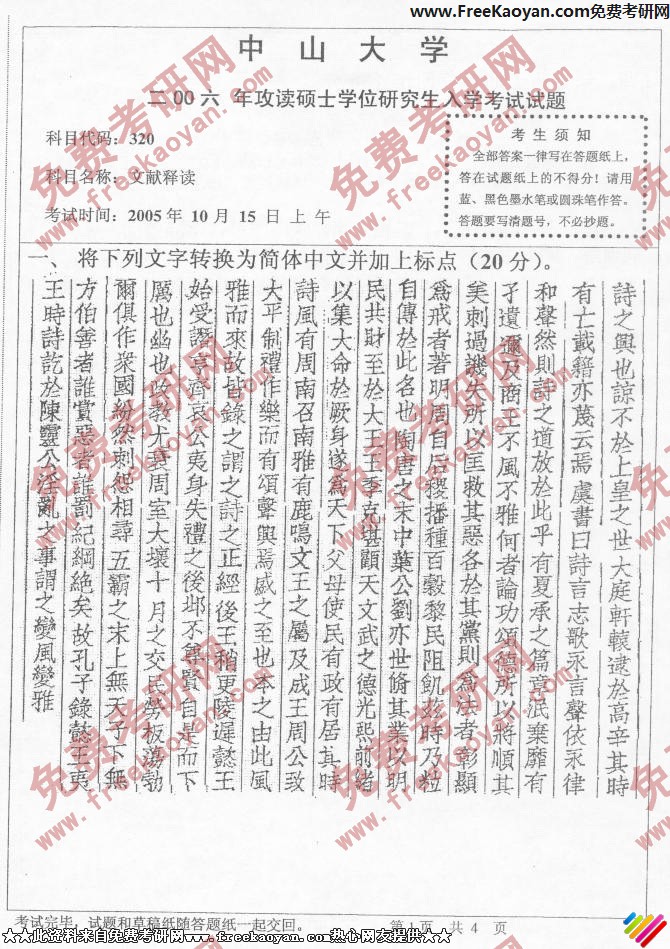 www.FreeKaoyan.com免费考研网
中山大学
二00六 年攻读硕士学位研究生入学考试试题
科目代码：320
科目名称：文献释读
考试时间：2005 年 10 月 15 日 上 午
考 生 须 知
全部答案一律写在答题纸上，
答在试题纸上的不得分！请用
蓝、黑色墨水笔或圆珠笔作答。
答题要写清题号，不必抄题。
一、 将下列文字转换为简体中文并加上标点（20 分）。
詩之興也諒不於上皇之世大庭軒轅逮於高辛其時
有亡載籍亦蔑云焉虞書曰詩言志歌永言聲依永律
和聲然則詩之道放於此乎有夏承之篇章泯棄靡有
孑遺邇及商王不風不雅何者論功頌德所以將順其
美刺過譏失所以匡救其惡各於其黨則爲法者彰顯
爲戒者著明周自后稷播種百穀黎民阻飢茲時乃粒
自傳於此名也陶唐之末中葉公劉亦世脩其業以明
民共財至於大王王季克堪顧天文武之德光熙前緒
以集大命於厥身遂爲天下父母使民有政有居其時
詩風有周南召南雅有鹿鳴文王之屬及成王周公致
大平制禮作樂而有頌聲興焉盛之至也本之由此風
雅而來故皆錄之謂之詩之正經後王稍更陵遲懿王
始受譖亨齊哀公夷身失禮之後邶不尊賢自是而下
厲也幽也政教尤衰周室大壞十月之交民勞板蕩勃
爾俱作衆國紛然刺怨相尋五霸之末上無天子下無
方伯善者誰賞惡者誰罰紀綱絕矣故孔子錄懿王夷
王時詩訖於陳靈公淫亂之事謂之變風變雅
免费考研网
www.freekaoyan.com
免费考研网
www.freekaoyan.com
免费考研网
www.freekaoyan.com
免费考研网
www.freekaoyan.com
免费考研网
www.freekaoyan.com
免费考研网
www.freekaoyan.com
考试完毕，试题和草稿纸随答题纸一起交回。 第 1 页 共 4 页
★★此资料来自免费考研网www.freekaoyan.com热心网友提供★★